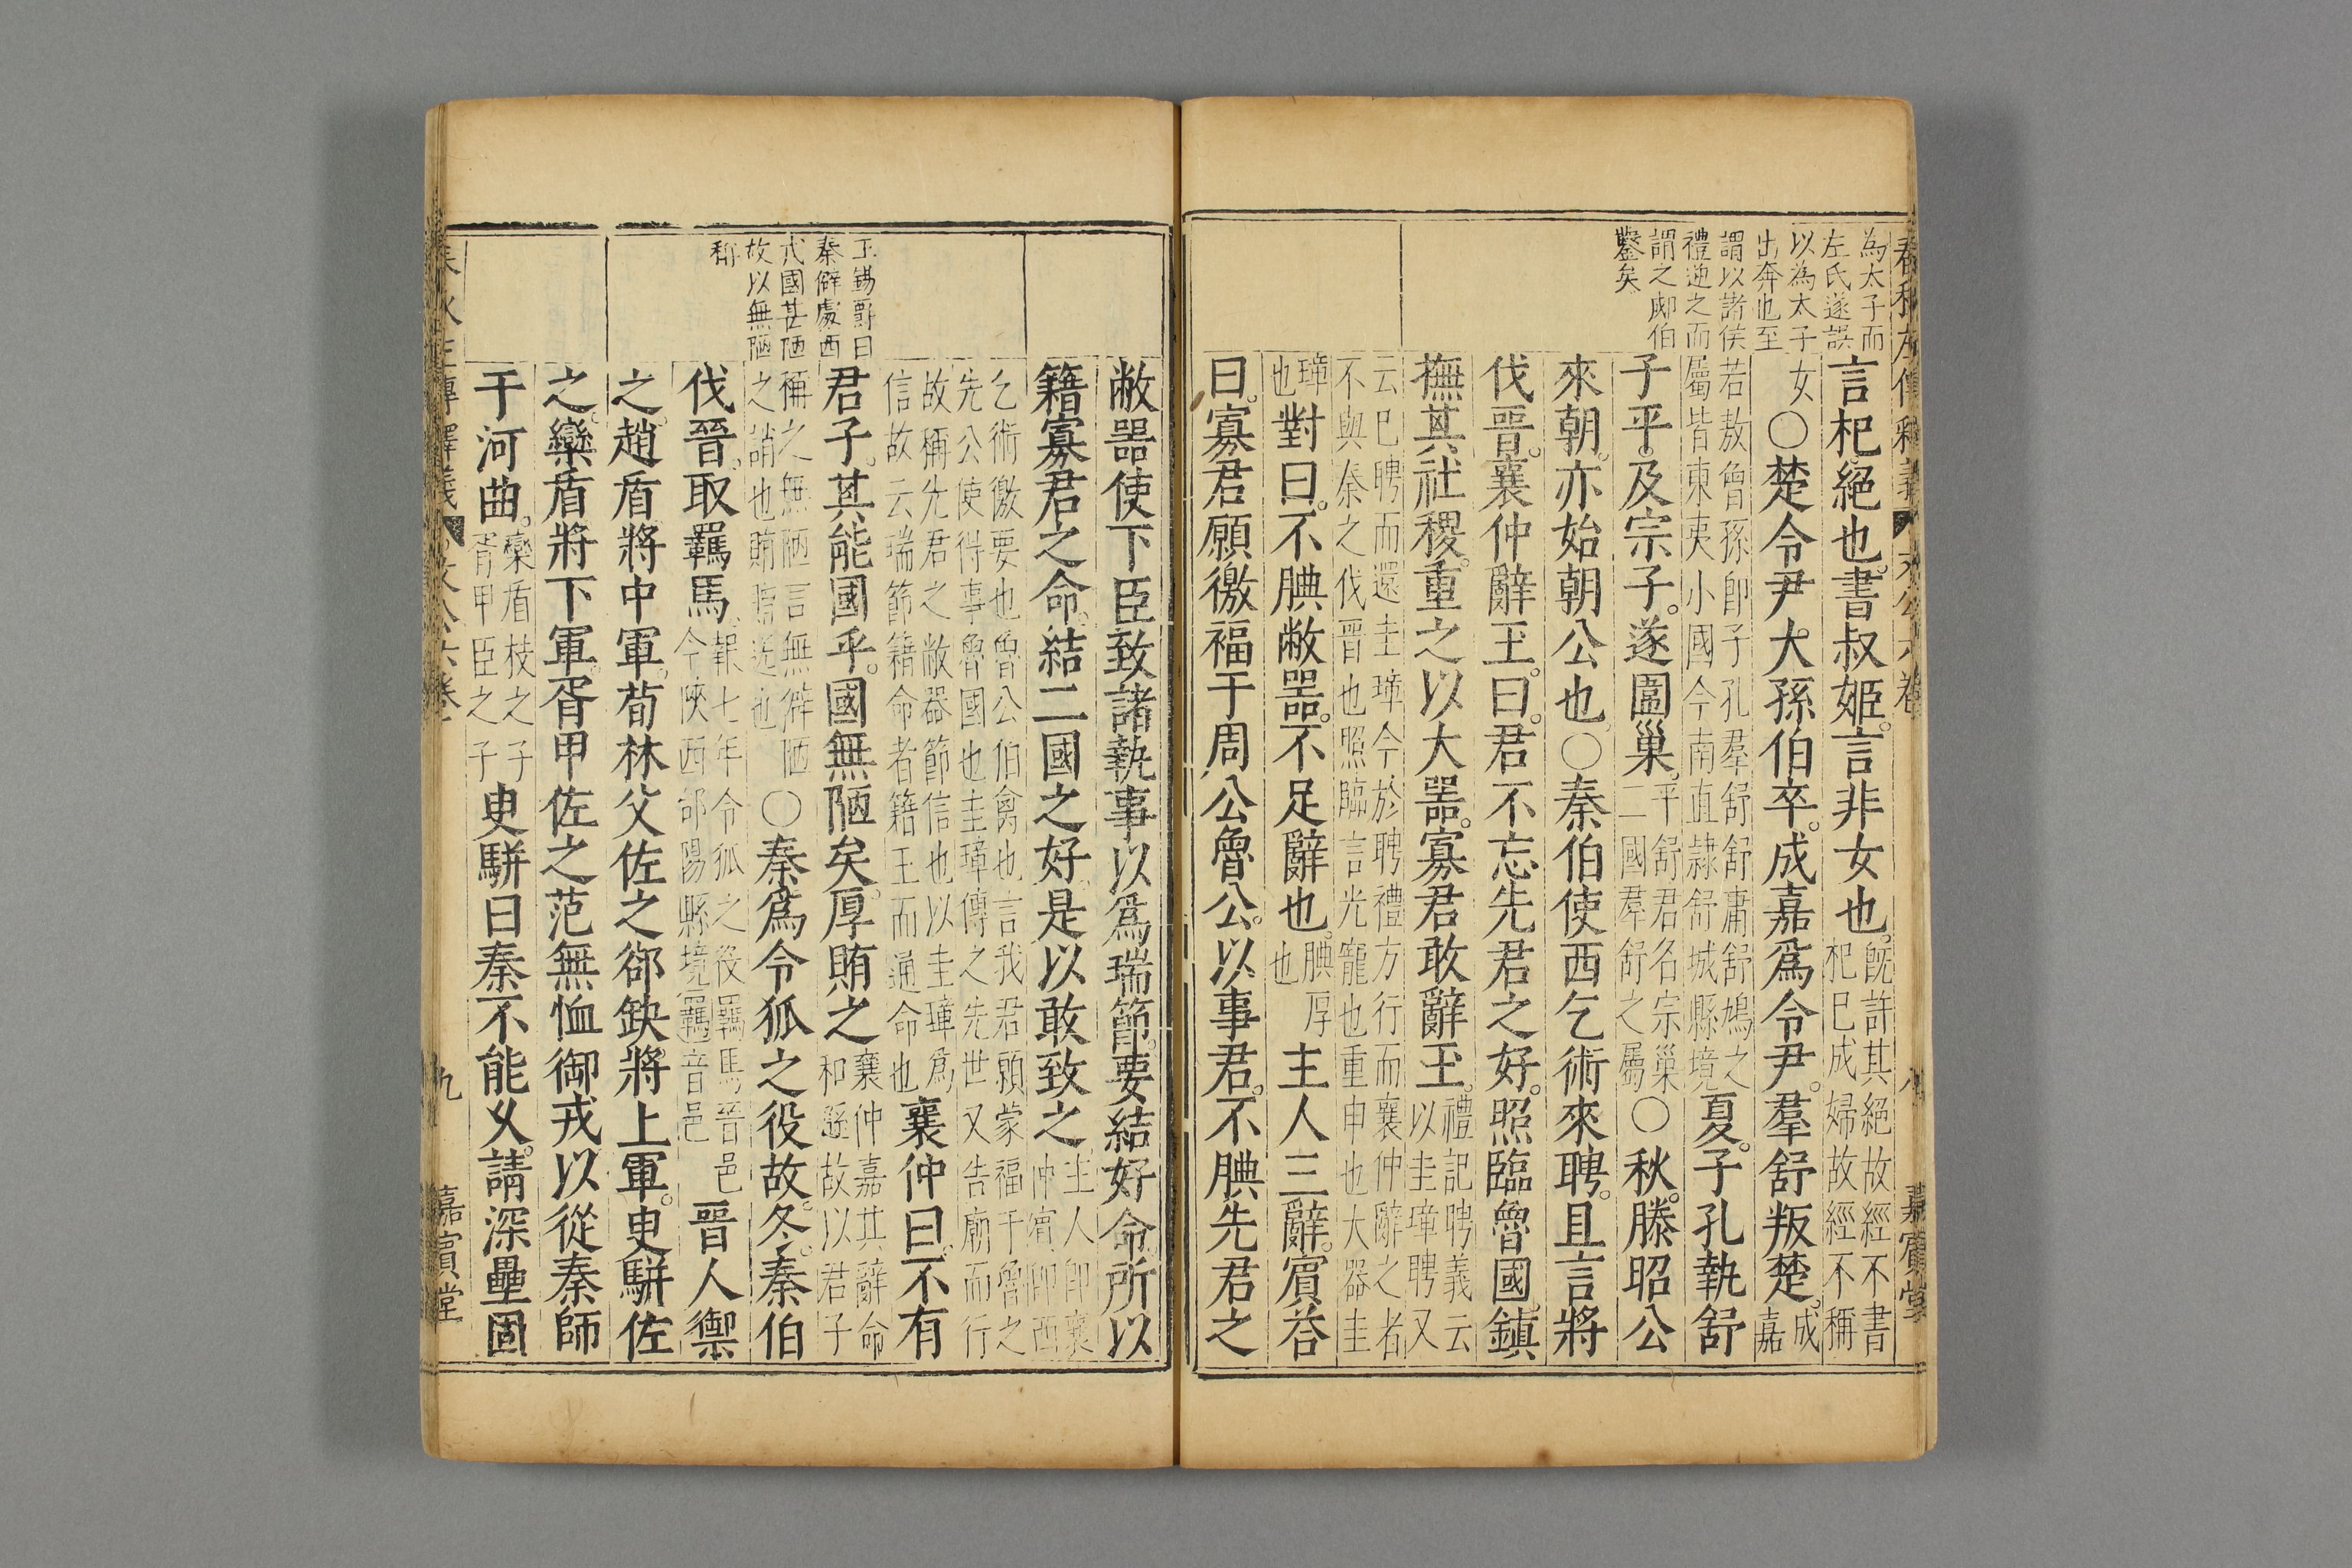 春秋左傳釋義 文公六卷 八 嘉賔堂
為太子而
左氏遂誤
以為太子
出奔也至
謂以諸侯
禮逆之而
謂之郕伯
鑿矣
言杞絕也。書叔姬。言非女也。既許其絕故經不書杞巳成婦故經不稱
女○楚令尹大孫伯卒。成嘉爲令尹。羣舒叛楚。成嘉
若敖曾孫卽子孔羣舒舒庸舒鳩之屬皆東夷小國今南直隷舒城縣境夏。子孔執舒
子平。及宗子。遂圍巢。平舒君名宗巢二國羣舒之屬○秋。滕昭公
來朝。亦始朝公也○秦伯使西乞術來聘。且言將
伐晉。襄仲辭玉。曰。君不忘先君之好。照臨魯國。鎮
撫其社稷。重之以大噐。寡君敢辭玉。禮記聘義云以圭璋聘又
云巳聘而還圭璋今於聘禮方行而襄仲辭之者不與秦之伐晉也照臨言光寵也重申也大器圭
璋也對曰。不腆敝噐。不足辭也。腆厚也主人三辭。賔荅
曰。寡君願徼福于周公魯公。以事君。不腆先君之
王錫爵曰
秦僻處西
戎國甚陋
故以無陋
稱
敝噐使下臣致諸執事以爲瑞節。要結好命。所以
籍寡君之命。結二國之好。是以敢致之主人卽襄仲賔卽西
乞術徼要也魯公伯禽也言我君願蒙福于魯之先公使得事魯國也圭璋傳之先世又告廟而行
故稱先君之敝器節信也以圭璋爲信故云瑞節籍命者籍玉而通命也襄仲曰。不有
君子。其能國乎。國無陋矣。厚賄之襄仲嘉其辭命和遜故以君子
稱之無陋言無僻陋之誚也賄贈送也○秦爲令狐之役故。冬。秦伯
伐晉。取羈馬。報七年令狐之役羈馬晉邑今陜西郃陽縣境羈音邑晉人禦
之。趙盾將中軍。荀林父佐之。郤缺將上軍。臾駢佐
之。欒盾將下軍。胥甲佐之。范無恤御戎。以從秦師
于河曲。欒盾枝之子胥甲臣之子臾駢曰秦不能乆。請深壘固
春秋左傳釋義 文公六卷 九 嘉賔堂